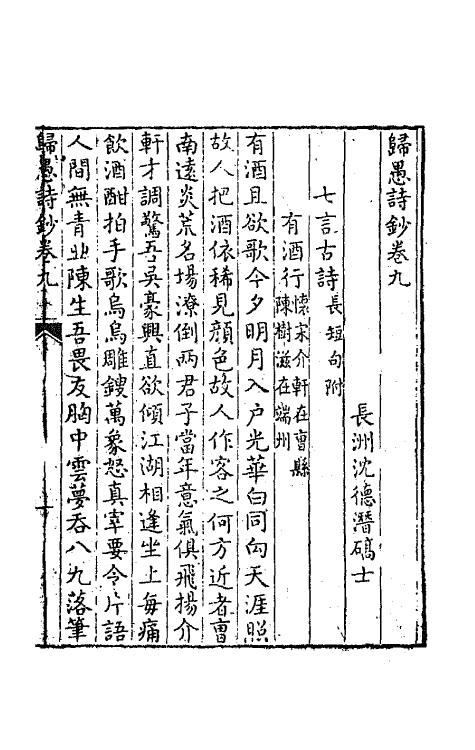 歸愚詩鈔卷九
長洲沈德潛碻士
七言古詩長短句附
有酒行懷宋介軒在曹縣陳樹滋在端州
有酒且欲歌今夕明月入户光華白同向天涯照
故人把酒依稀見顔色故人作客之何方近者曹
南遠炎荒名場潦倒兩君子當年意氣俱飛揚介
軒才調驚吾吳豪興直欲傾江湖相逢坐上每痛
飲酒酣拍手歌烏烏雕鎪萬象怒真宰要令片語
人間無青丘陳生吾畏友胸中雲夢吞八九落筆
歸愚詩鈔卷九